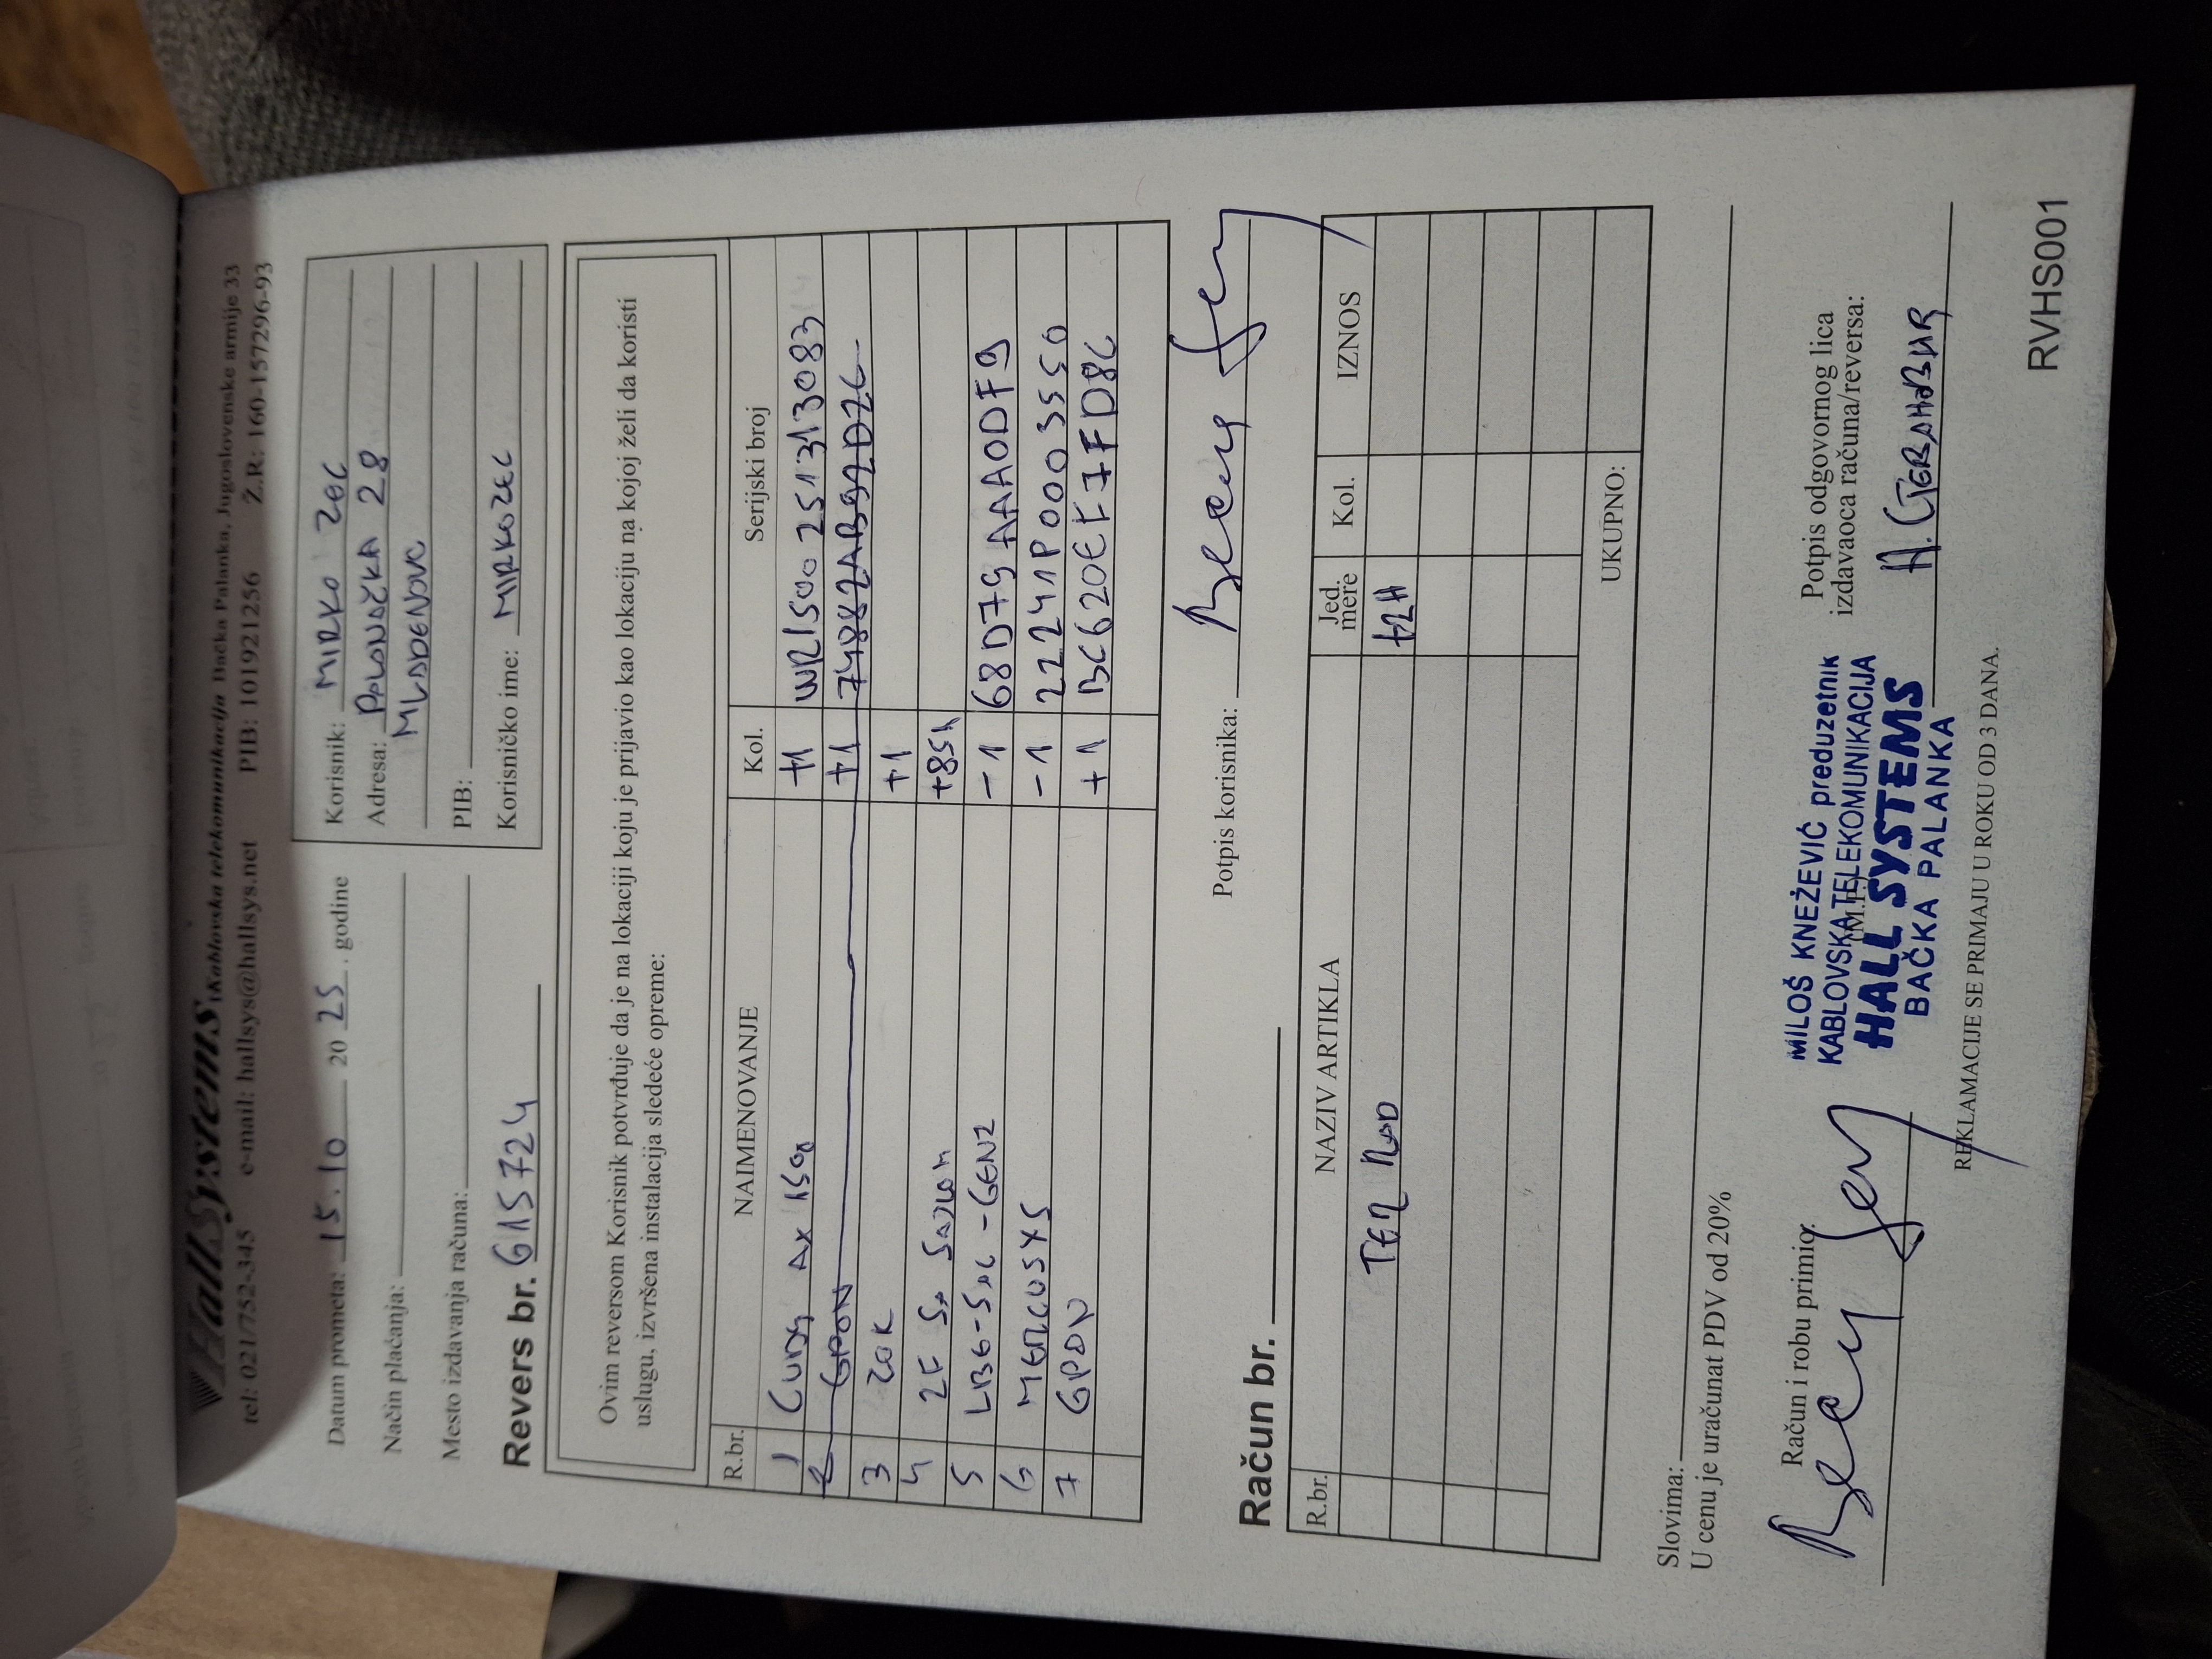 HallSystems Kablovska telekomunikacija Bačka Palanka, Jugoslovenske armije 33
tel: 021/752-345 e-mail: hallsys@hallsys.net PIB: 101921256 Ž.R: 160-157296-93
Datum prometa: 15.10 20 25 . godine
Način plaćanja:
Mesto izdavanja računa:
Revers br. 615724
Korisnik: MIRKO ZEC
Adresa: PALONAČKA 28
MLADENOVO
PIB:
Korisničko ime: MIRKOZEC
Ovim reversom Korisnik potvrđuje da je na lokaciji koju je prijavio kao lokaciju na kojoj želi da koristi
uslugu, izvršena instalacija sledeće opreme:
R.br. NAIMENOVANJE Kol. Serijski broj
1 CUDY AX 1500 +1 WR1500 251313083
2 GPON +1 74887AB92D7C
3 ZOK +1
4 2F SA +85M
5 LBE-5AC-GEN2 -1 68D79AAA0DF9
6 MERCUSYS -1 22241P0003550
7 GPON +1 BC620EF7FD8C
Potpis korisnika:
Račun br.
R.br. NAZIV ARTIKLA Jed. mere Kol. IZNOS
TER RAD +2H
UKUPNO:
Slovima:
U cenu je uračunat PDV od 20%
Račun i robu primio:
(M.P.)
MILOŠ KNEŽEVIĆ preduzetnik
KABLOVSKA TELEKOMUNIKACIJA
HALL SYSTEMS
BAČKA PALANKA
Potpis odgovornog lica
izdavaoca računa/reversa:
REKLAMACIJE SE PRIMAJU U ROKU OD 3 DANA.
RVHS001